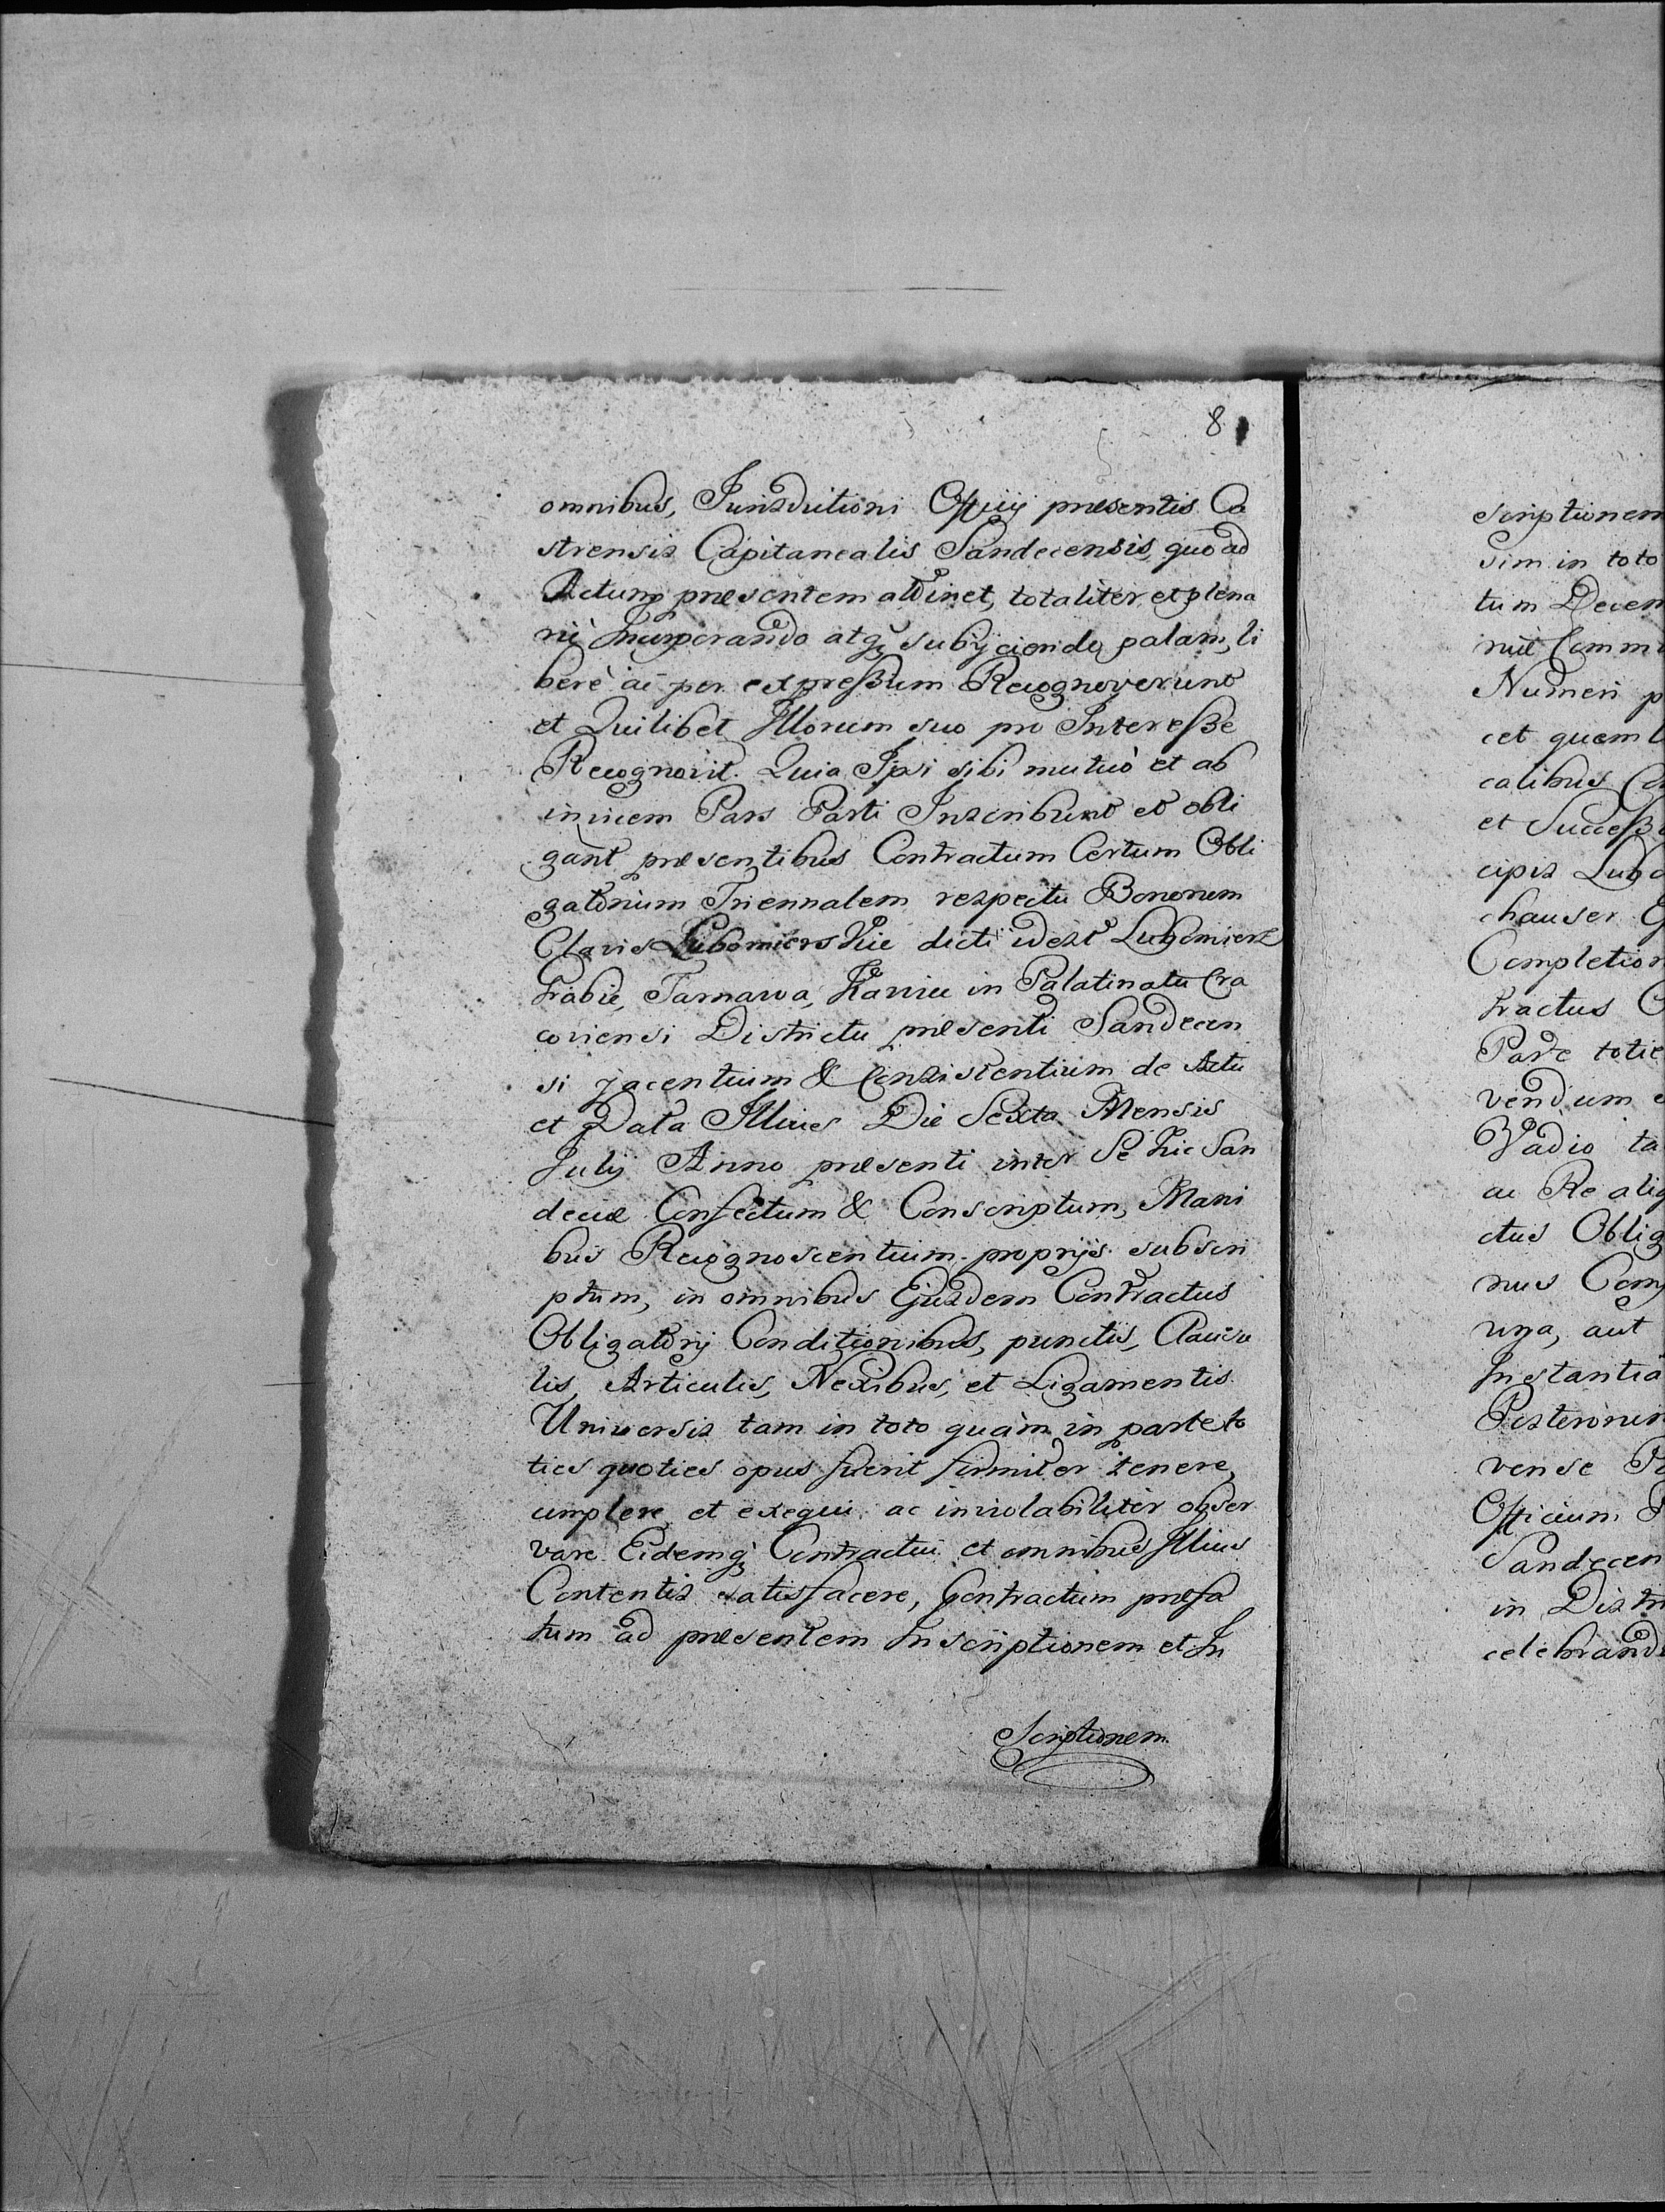 8
omnibus, Jurisdictioni Officij præsentis Ca
strensis Capitanealis Sandecensis, quo ad
Actum præsentem attinet, totaliter et plena
riè Incorporando atq; subijciendo, palam, li
berè ac per expreßum Recognoverunt
et Quilibet Illorum suo pro Intereße
Recognovit. Quia Ipsi sibi mutuò et ab
invicem Pars Parti Inscribunt et obli
gant præsentibus Contractum Certum Obli
gatorium Triennalem respectu Bonorum
Clavis Lubomierskie dicti idest Lubomierz
Hrabie, Tarnawa, in Palatinatu Cra
coviensi Districtu præsenti Sandecen
si jacentium & Consistentium de Actu
et Data Illius Die Sexta Mensis
Julij Anno præsenti inter Se hic San
deciæ Confectum & Conscriptum, Mani
bus Recognoscentium proprijs subscri
ptum, in omnibus Ejusdem Contractus
Obligatorij Conditionibus, punctis, Clausu
lis, Articulis, Nexibus, et Ligamentis
Universis tam in toto quàm in parte to
ties quoties opus fuerit firmiter tenere,
implere et exequi, ac inviolabiliter obser
vare. Eidemq; Contractui et omnibus Illius
Contentis satisfacere, Contractum præfa
tum ad præsentem Inscriptionem et In
Scriptionem
scriptionem
sim in toto
tum Decem
Numeri p
cet quem l
calibus Co
et Succeßo
cipis Lubo
chauser
Completion
tractus
Parte totie
vendum
Vadio ta
ac Re aliq
ctus Oblig
nus Com
una, aut
Instantia
Posterorum
vense
Officium P
Sandecen
in Distri
celebrand